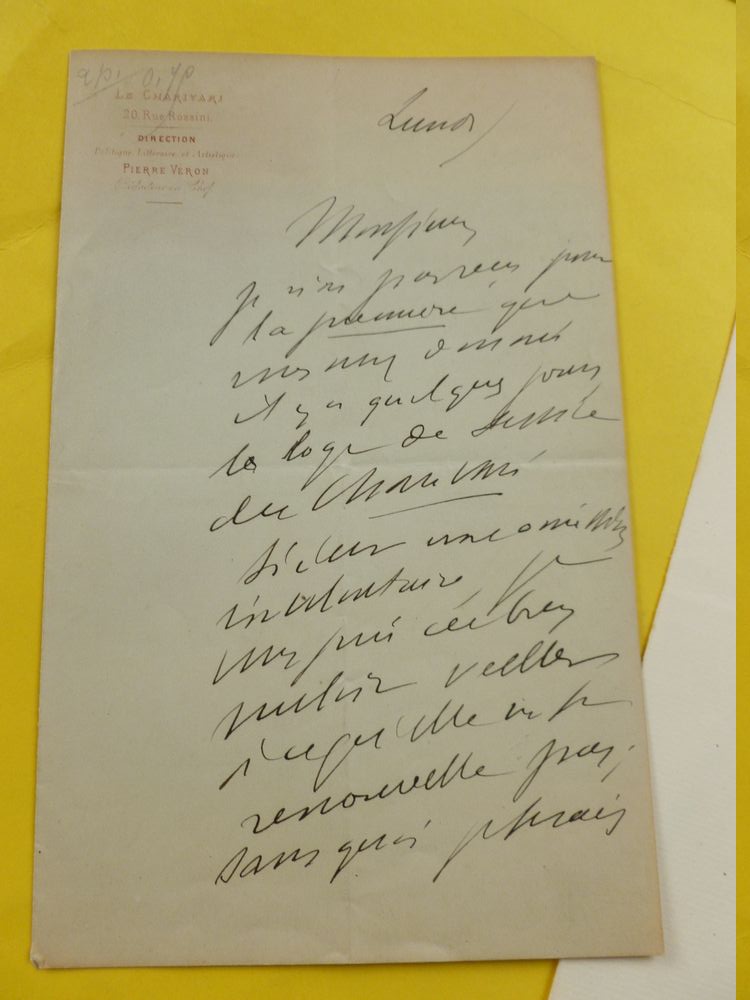 LE CHARIVARI
20 Rue Rossini.
DIRECTION
Politique, Littéraire et Artistique
PIERRE VÉRON
Rédacteur en Chef
Lundi
Monsieur
je vois pour
la première que
vous avez donné
il y a quelques jours
la loge de service
du Charivari
Si c'est une omission
involontaire, je
vous prie de
vouloir veiller
à ce qu'elle ne se
renouvelle pas;
sans quoi je ferais